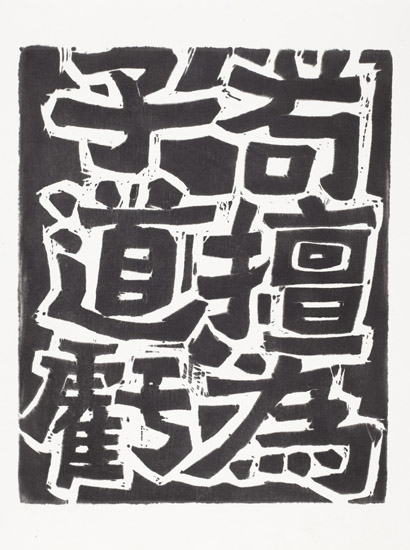 苟擅為
子道虧